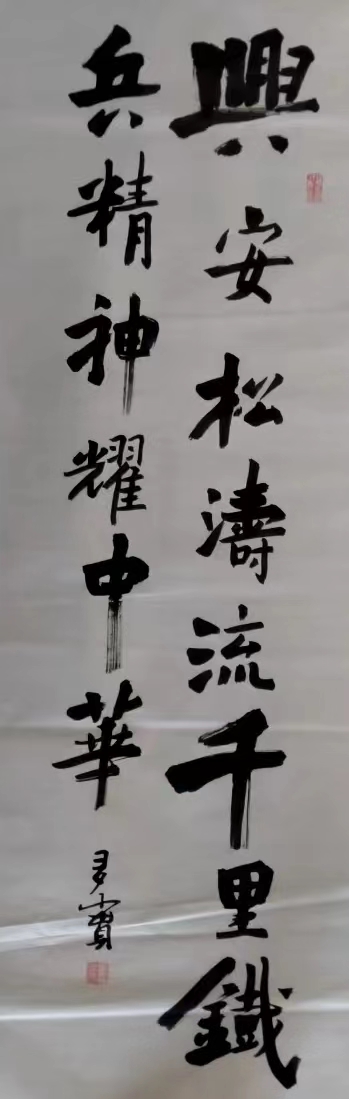 興安松濤流千里鐵
兵精神耀中華